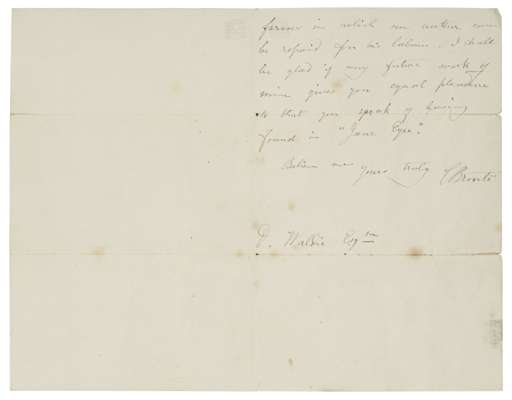 former in which an author can
be repaid for his labour. I shall
be glad if any future work of
mine gives you equal pleasure
to that you speak of having
found in "Jane Eyre".
Believe me
yours truly
C Brontë
D. Waldie Esqre